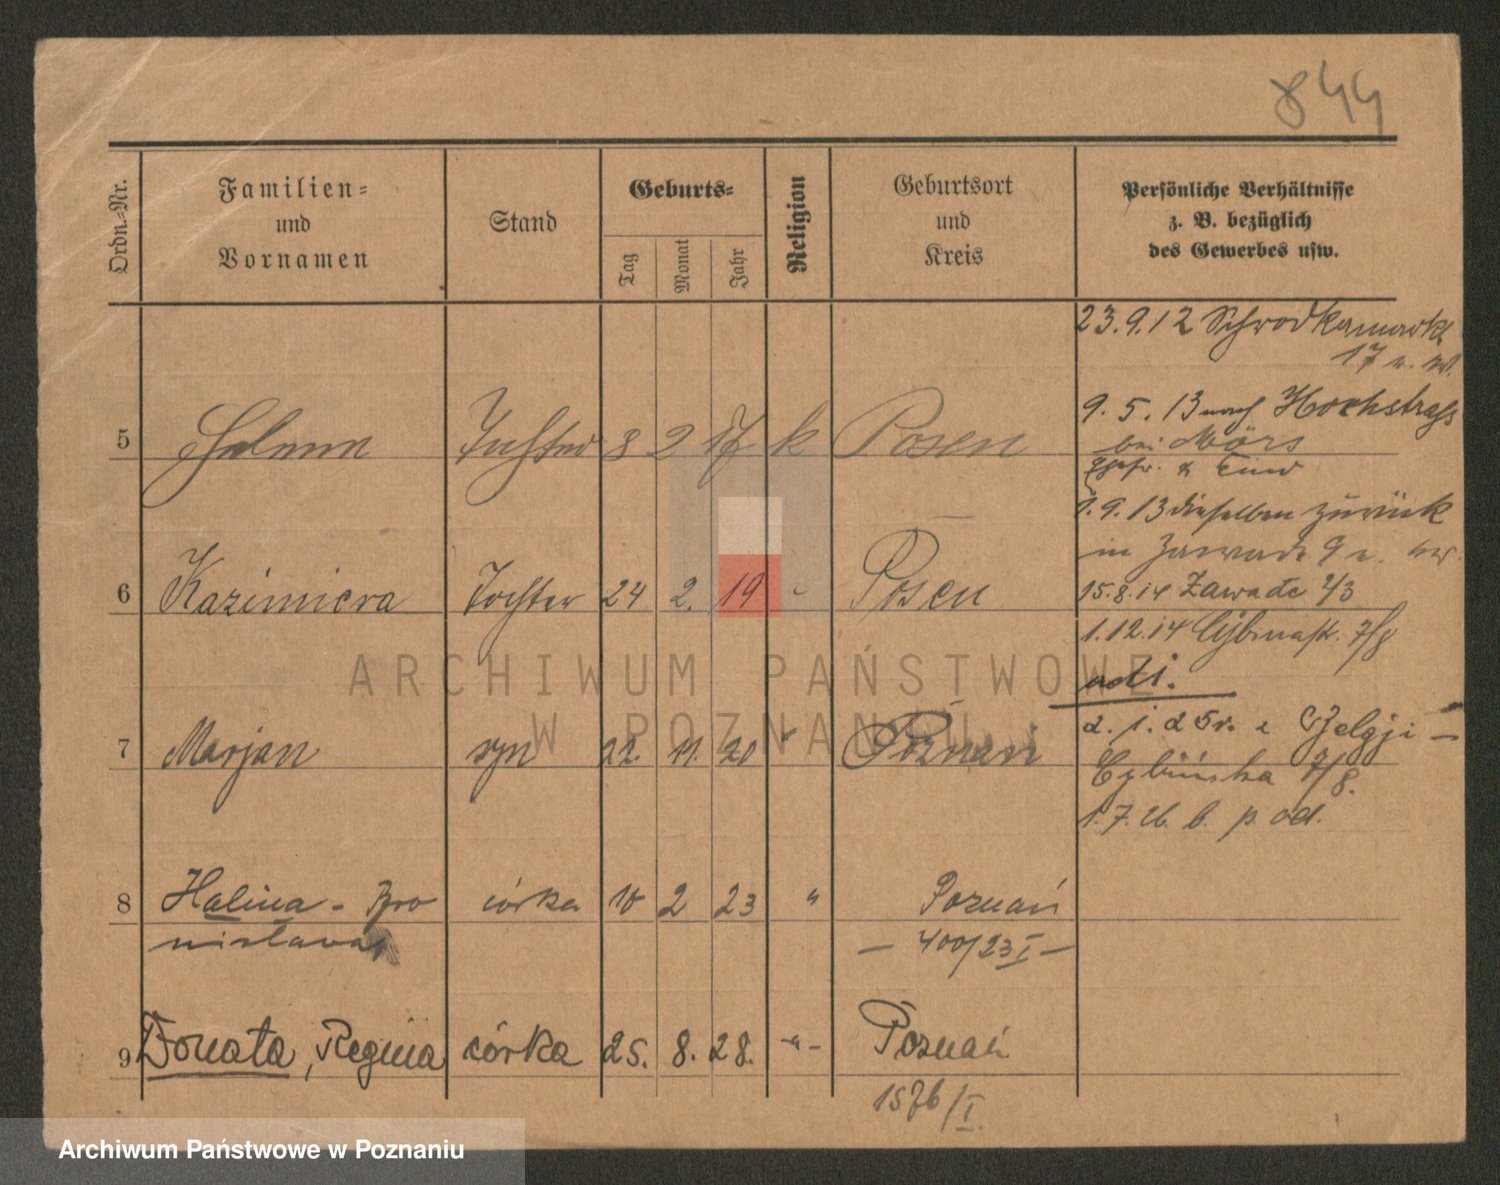 844
Ordn.-Nr.
Familien-
und
Vornamen
Stand
Geburts-
Tag
Monat
Jahr
Religion
Geburtsort
und
Kreis
Persönliche Verhältnisse
z. B. bezüglich
des Gewerbes usw.
23.9.12 Schrodkamarkt
17 n. w.
9. 5. 13 nach Hochstraß
bei Mörs
1.9.13 dieselben zurück
in Zawade 9
15.8.14 Zawade 2/3
1.12.14 Cybinastr. 7/8
2. 1. 25 r. z Belgji -
Cybińska 7/8.
1. 7. 26. b. p. od.
5 Helene Tochter 8 2 17 k Posen
6 Kazimiera Tochter 24 2. 19 " Posen
7 Marjan syn 22. 11. 20 " Poznań
8 Halina - Bro córka 10 2 23 " Poznań
nisława - 400/23 I -
9 Donata, Regina córka 25. 8. 28. -"- Poznań
1576/I.
ARCHIWUM PAŃSTWOWE
W POZNANIU
Archiwum Państwowe w Poznaniu